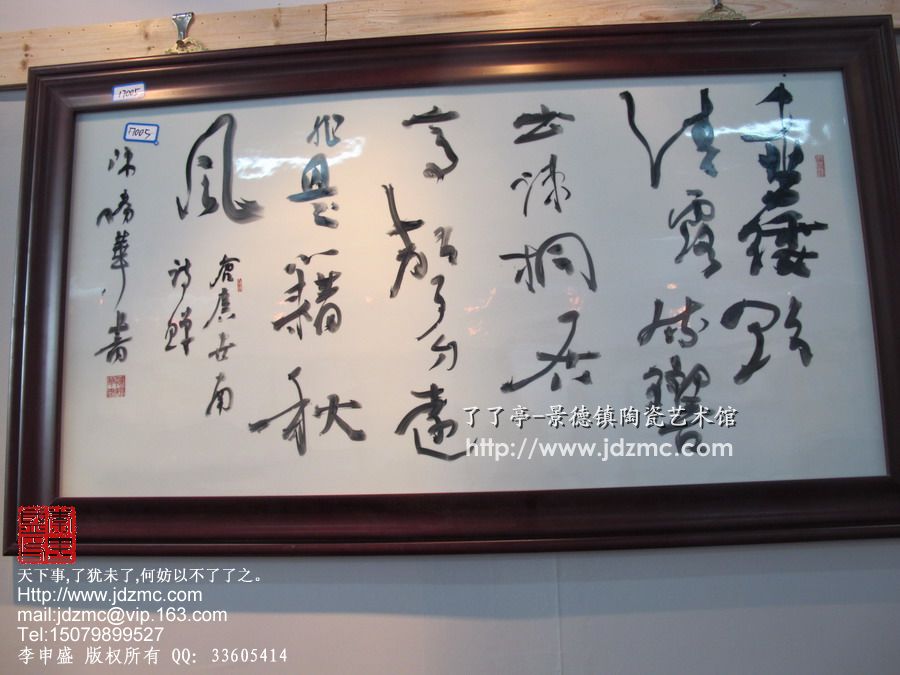 17005
17005
垂緌飲
清露流響
出疎桐居
高聲自遠
非是藉秋
風
唐虞世南
詩蟬
陈華書
了了亭-景德镇陶瓷艺术馆
http://www.jdzmc.com
天下事,了犹未了,何妨以不了了之。
Http://www.jdzmc.com
mail:jdzmc@vip.163.com
Tel:15079899527
李申盛 版权所有 QQ: 33605414